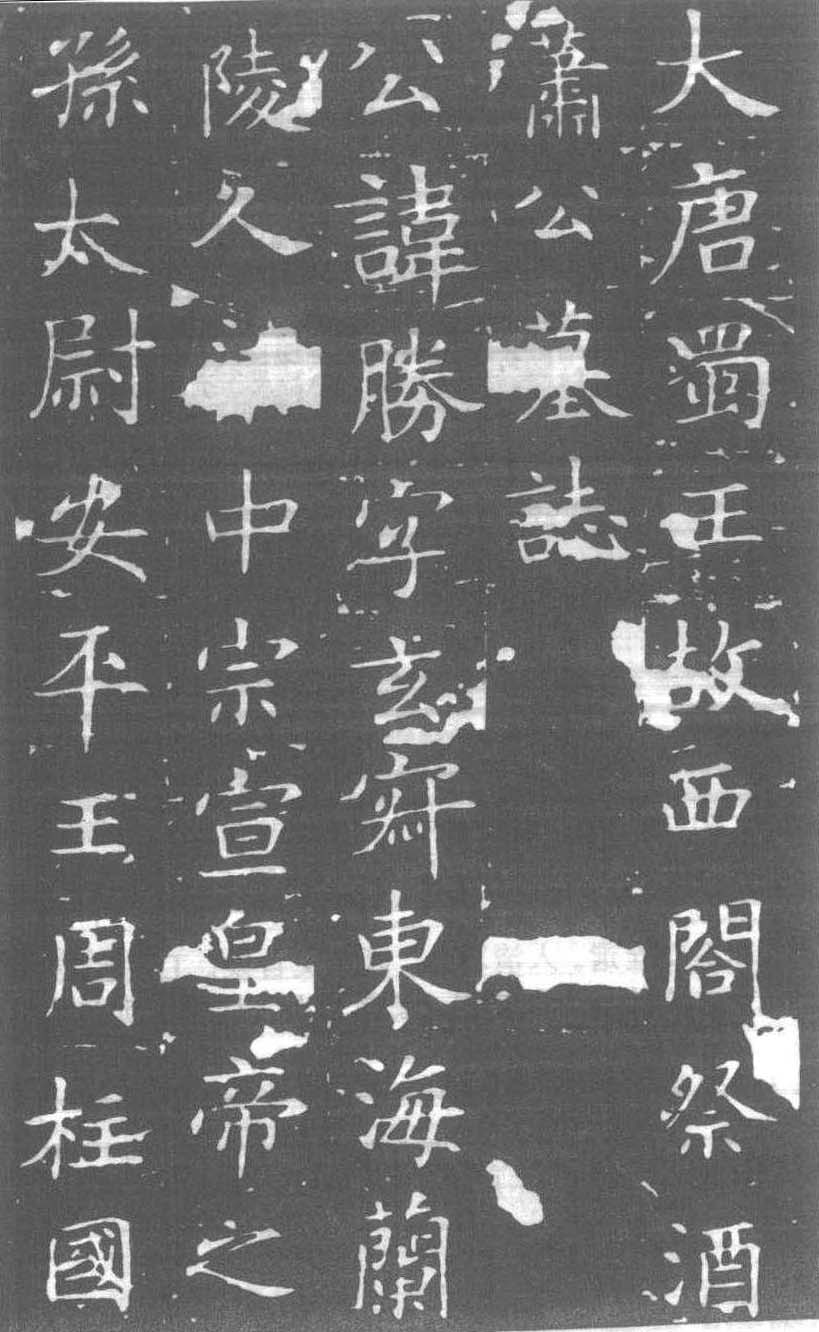 大唐蜀王故西閤祭酒
蕭公墓誌
公諱勝字玄寂東海蘭
陵人中宗宣皇帝之
孫太尉安平王周柱國